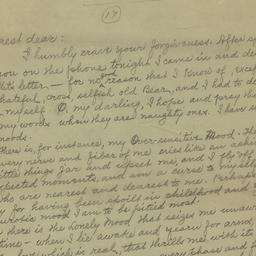 (17)
rest dear:
I humbly crave your forgiveness. After
you on the phone tonight I came in and
letter — for no good reason that I know of,
hateful, cross, selfish old Bear, and I had to
myself. O, my darling, I hope and pray
my words when they are naughty ones. I have
moods.
There is, for instance, my Over-sensitive Mood,
every nerve and fiber of me cries like an
little things jar and upset me, and I fly off
unexpected moments, and am a curse to myself
who are nearest and dearest to me. Perhaps
for having been spoiled in childhood and
neurotic mood I am to be pitied most.
there is the lonely Mood that seizes me
time — when I lie awake and yearn for arms,
which is real, that thrills me with its
every phase and